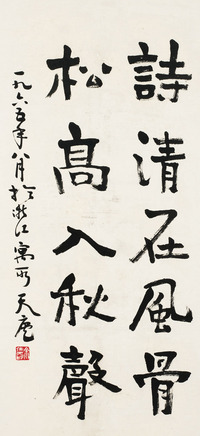 詩清在風骨
松高入秋聲
一九六五年八月於浙江寓所 天廬